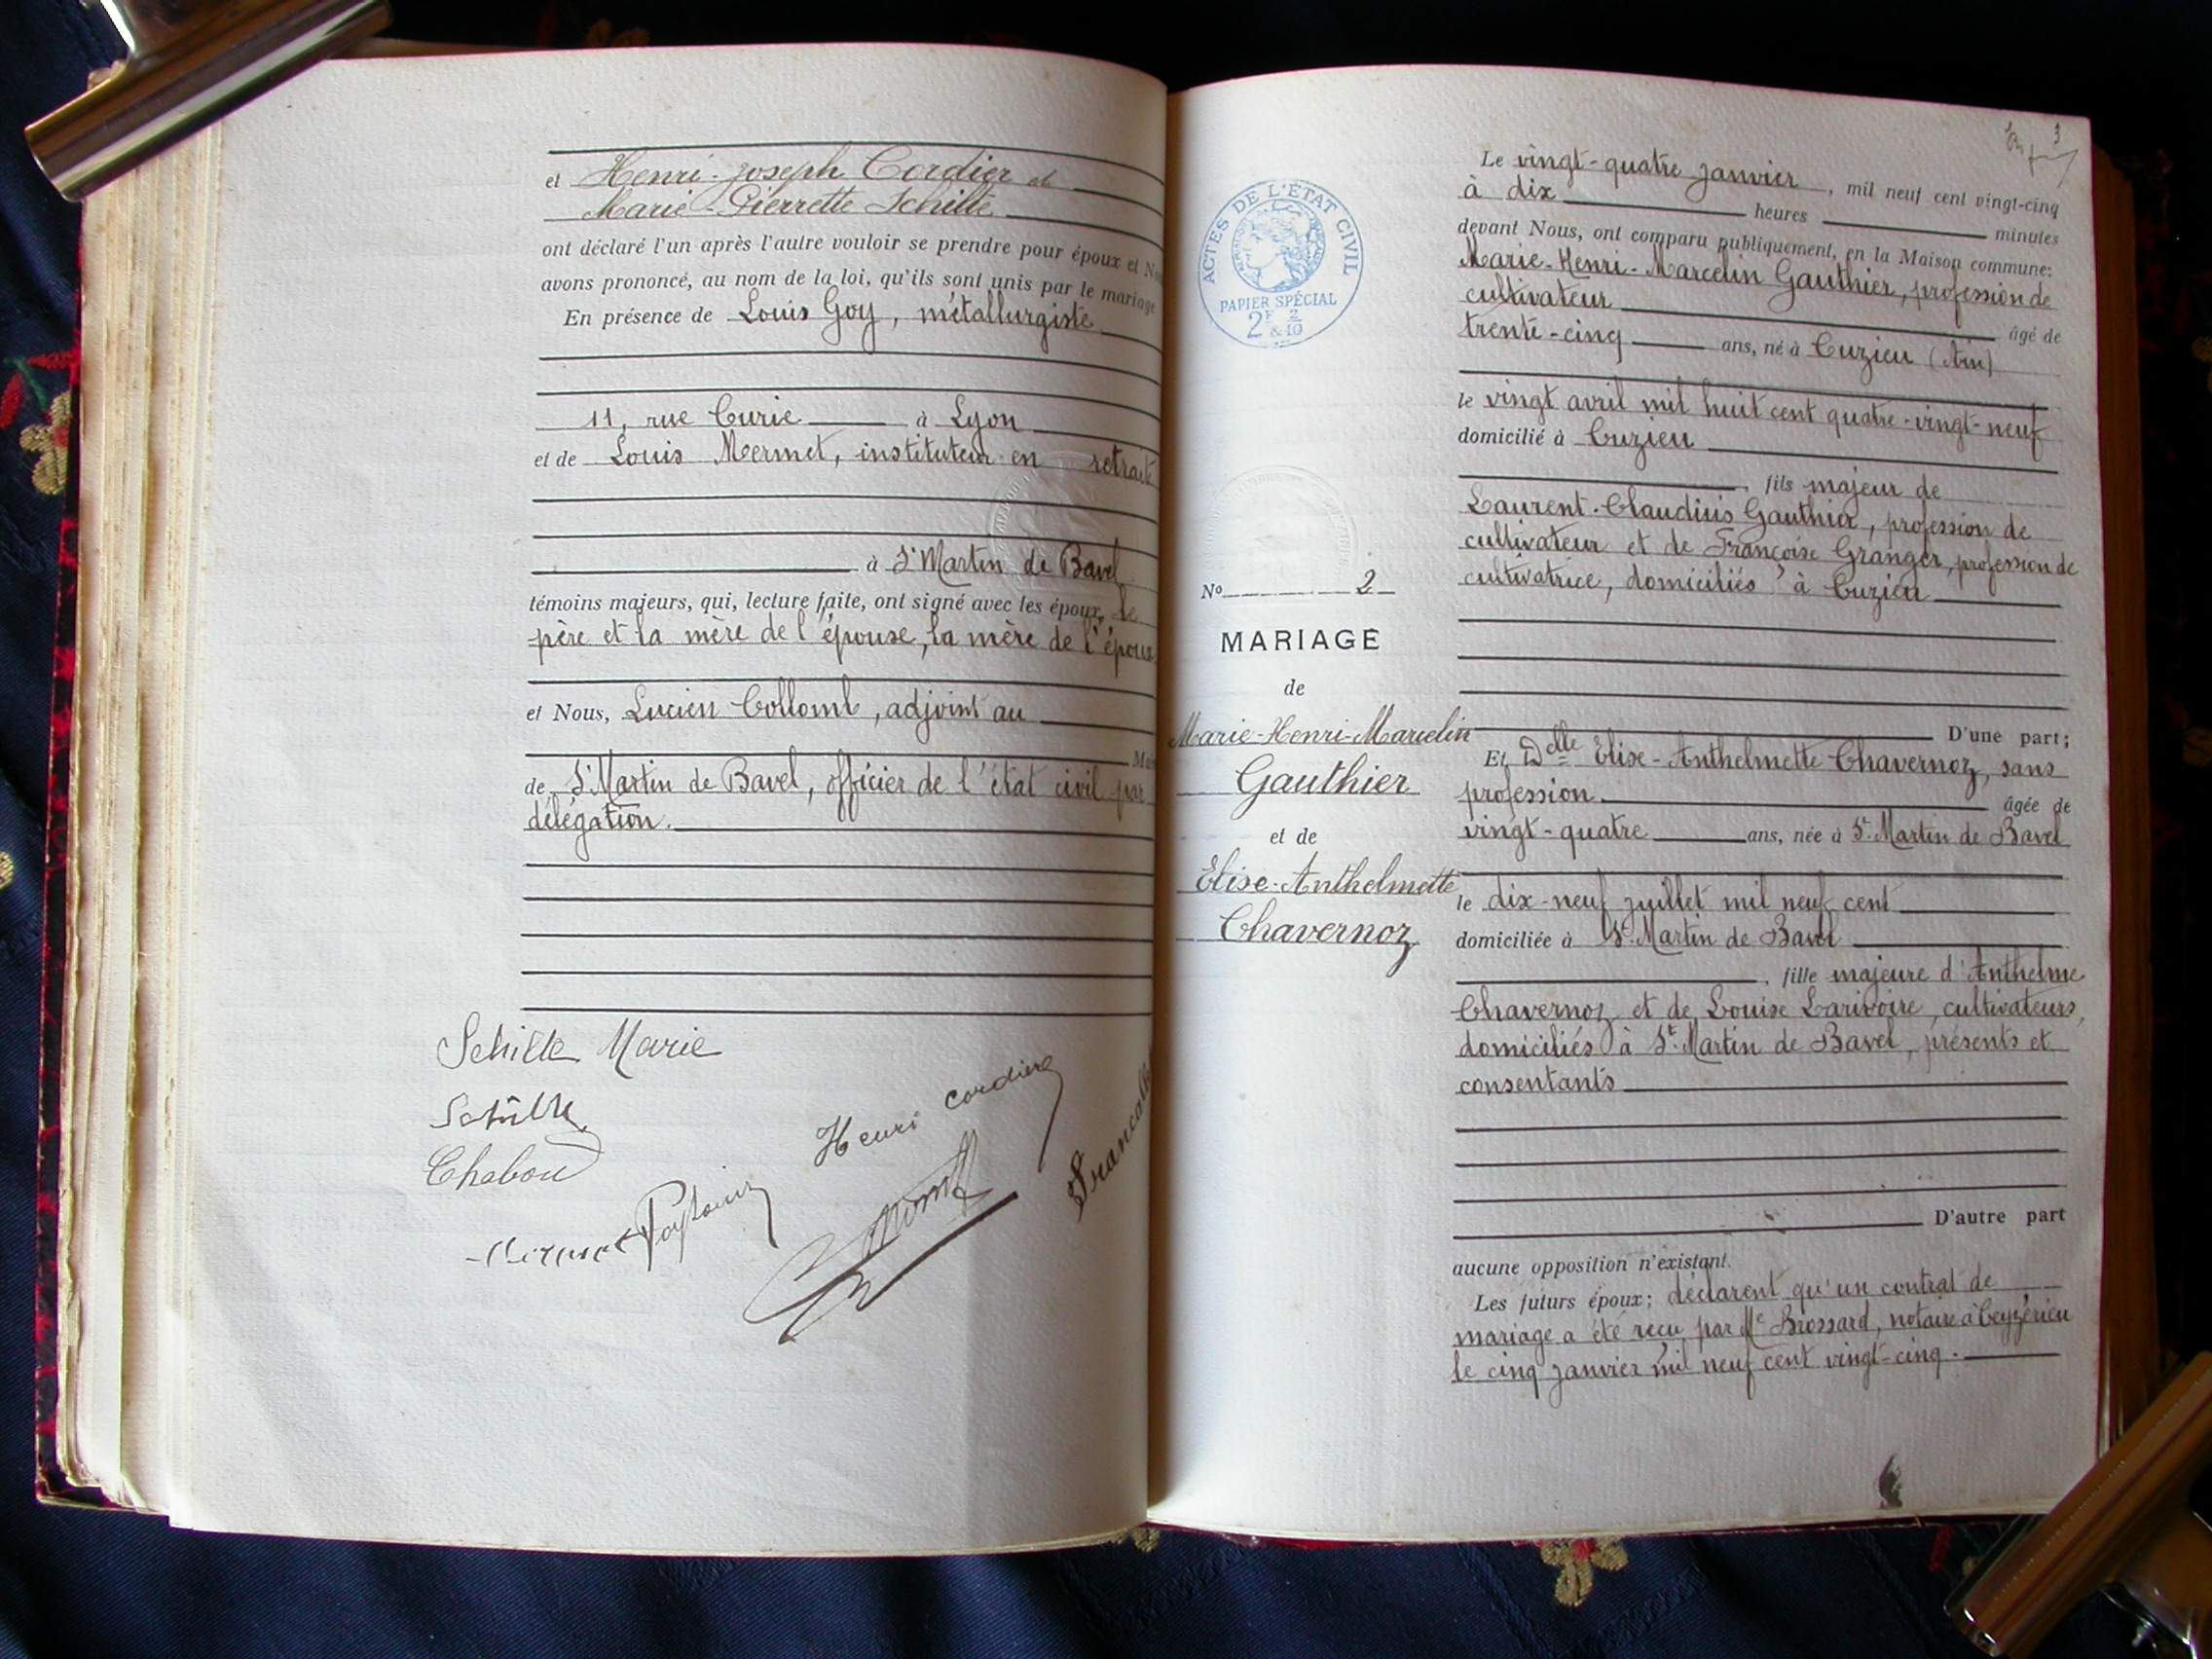 et Henri-Joseph Cordier et
Marie-Pierrette Schille
ont déclaré l'un après l'autre vouloir se prendre pour époux et
avons prononcé, au nom de la loi, qu'ils sont unis par le mariage
En présence de Louis Goy, métallurgiste
11, rue Curie à Lyon
et de Louis Mermet, instituteur en retraite
à St Martin de Bavel
témoins majeurs, qui, lecture faite, ont signé avec les époux, le
père et la mère de l'épouse, la mère de l'époux
et Nous, Lucien Collomb, adjoint au
de St Martin de Bavel, officier de l'état civil par
délégation.
Schille Marie
Schille
Henri Cordier
3
ACTES DE L'ÉTAT CIVIL
PAPIER SPÉCIAL
2F 2/10
&
No 2
MARIAGE
de
Marie-Henri-Marcelin
Gauthier
et de
Elise-Anthelmette
Chavernoz
Le vingt-quatre janvier, mil neuf cent vingt-cinq
à dix heures minutes
devant Nous, ont comparu publiquement, en la Maison commune:
Marie-Henri-Marcelin Gauthier, profession de
cultivateur âgé de
trente-cinq ans, né à Cuzieu (Ain)
le vingt avril mil huit cent quatre-vingt-neuf
domicilié à Cuzieu
, fils majeur de
Laurent-Claudius Gauthier, profession de
cultivateur et de Françoise Granger, profession de
cultivatrice, domiciliés à Cuzieu
D'une part;
Et Delle Elise-Anthelmette Chavernoz, sans
profession âgée de
vingt-quatre ans, née à St Martin de Bavel
le dix-neuf juillet mil neuf cent
domiciliée à St Martin de Bavel
, fille majeure d'Anthelme
Chavernoz et de Louise Larivoire, cultivateurs,
domiciliés à St Martin de Bavel, présents et
consentants
D'autre part
aucune opposition n'existant.
Les futurs époux; déclarent qu'un contrat de
mariage a été reçu par Me Brossard, notaire à Ceyzérieu
le cinq janvier mil neuf cent vingt-cinq.